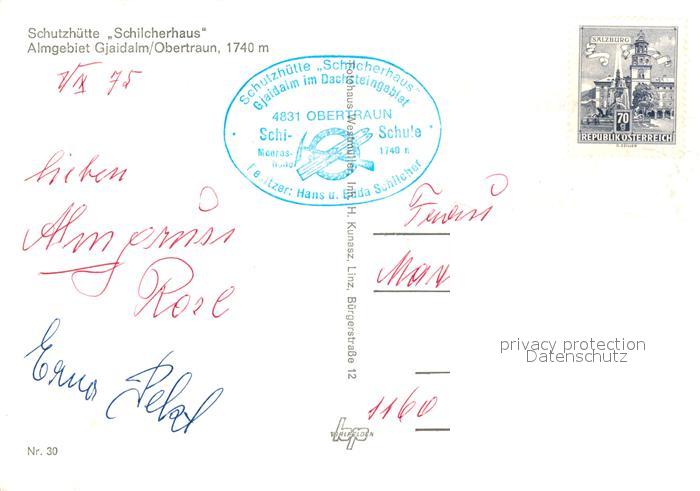 Schutzhütte „Schilcherhaus"
Almgebiet Gjaidalm/Obertraun, 1740 m
VIII 75
lieben
Almgruss
Rosl
Erna
Nr. 30
Schutzhütte „Schilcherhaus"
Gjaidalm im Dachsteingebiet
4831 OBERTRAUN
Schi- Schule
Meeres- 1740 m
Besitzer: Hans u. Schilcher
Fotohaus Inh. H. Kunasz, Linz, Bürgerstraße 12
SALZBURG
70
g
REPUBLIK ÖSTERREICH
Frau
1160
privacy protection
Datenschutz